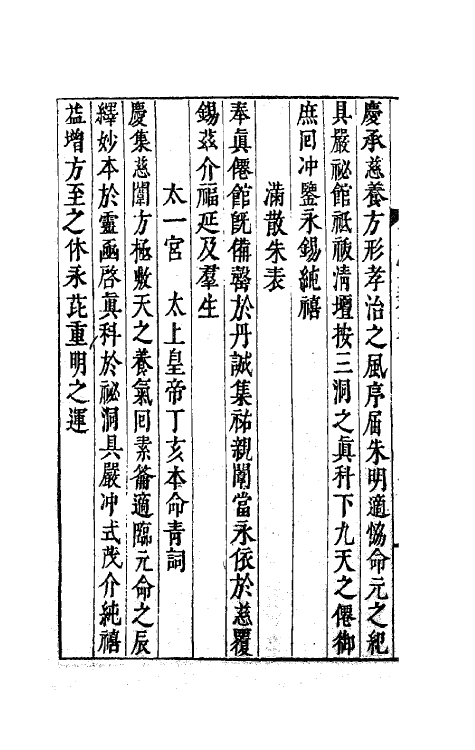 慶承慈養方形孝治之風序屆朱明適恊命元之紀
具嚴祕館祗祓凊壇按三洞之眞科下九天之僊御
庶回冲鑒永錫純禧
滿散朱表
奉眞僊館旣備罄於丹誠集祐親闈當永依於慈覆
錫兹介福延及羣生
太一宮　太上皇帝丁亥本命青詞
慶集慈闈方極敷天之養氣回素籥適臨元命之辰
繹妙本於靈凾啓眞科於祕洞具嚴冲式茂介純禧
益增方至之休永芘重明之運